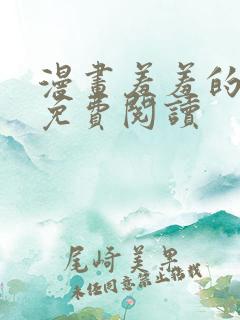 漫畫羞羞的
免費閱讀
尾崎美果
未經同意禁止轉載